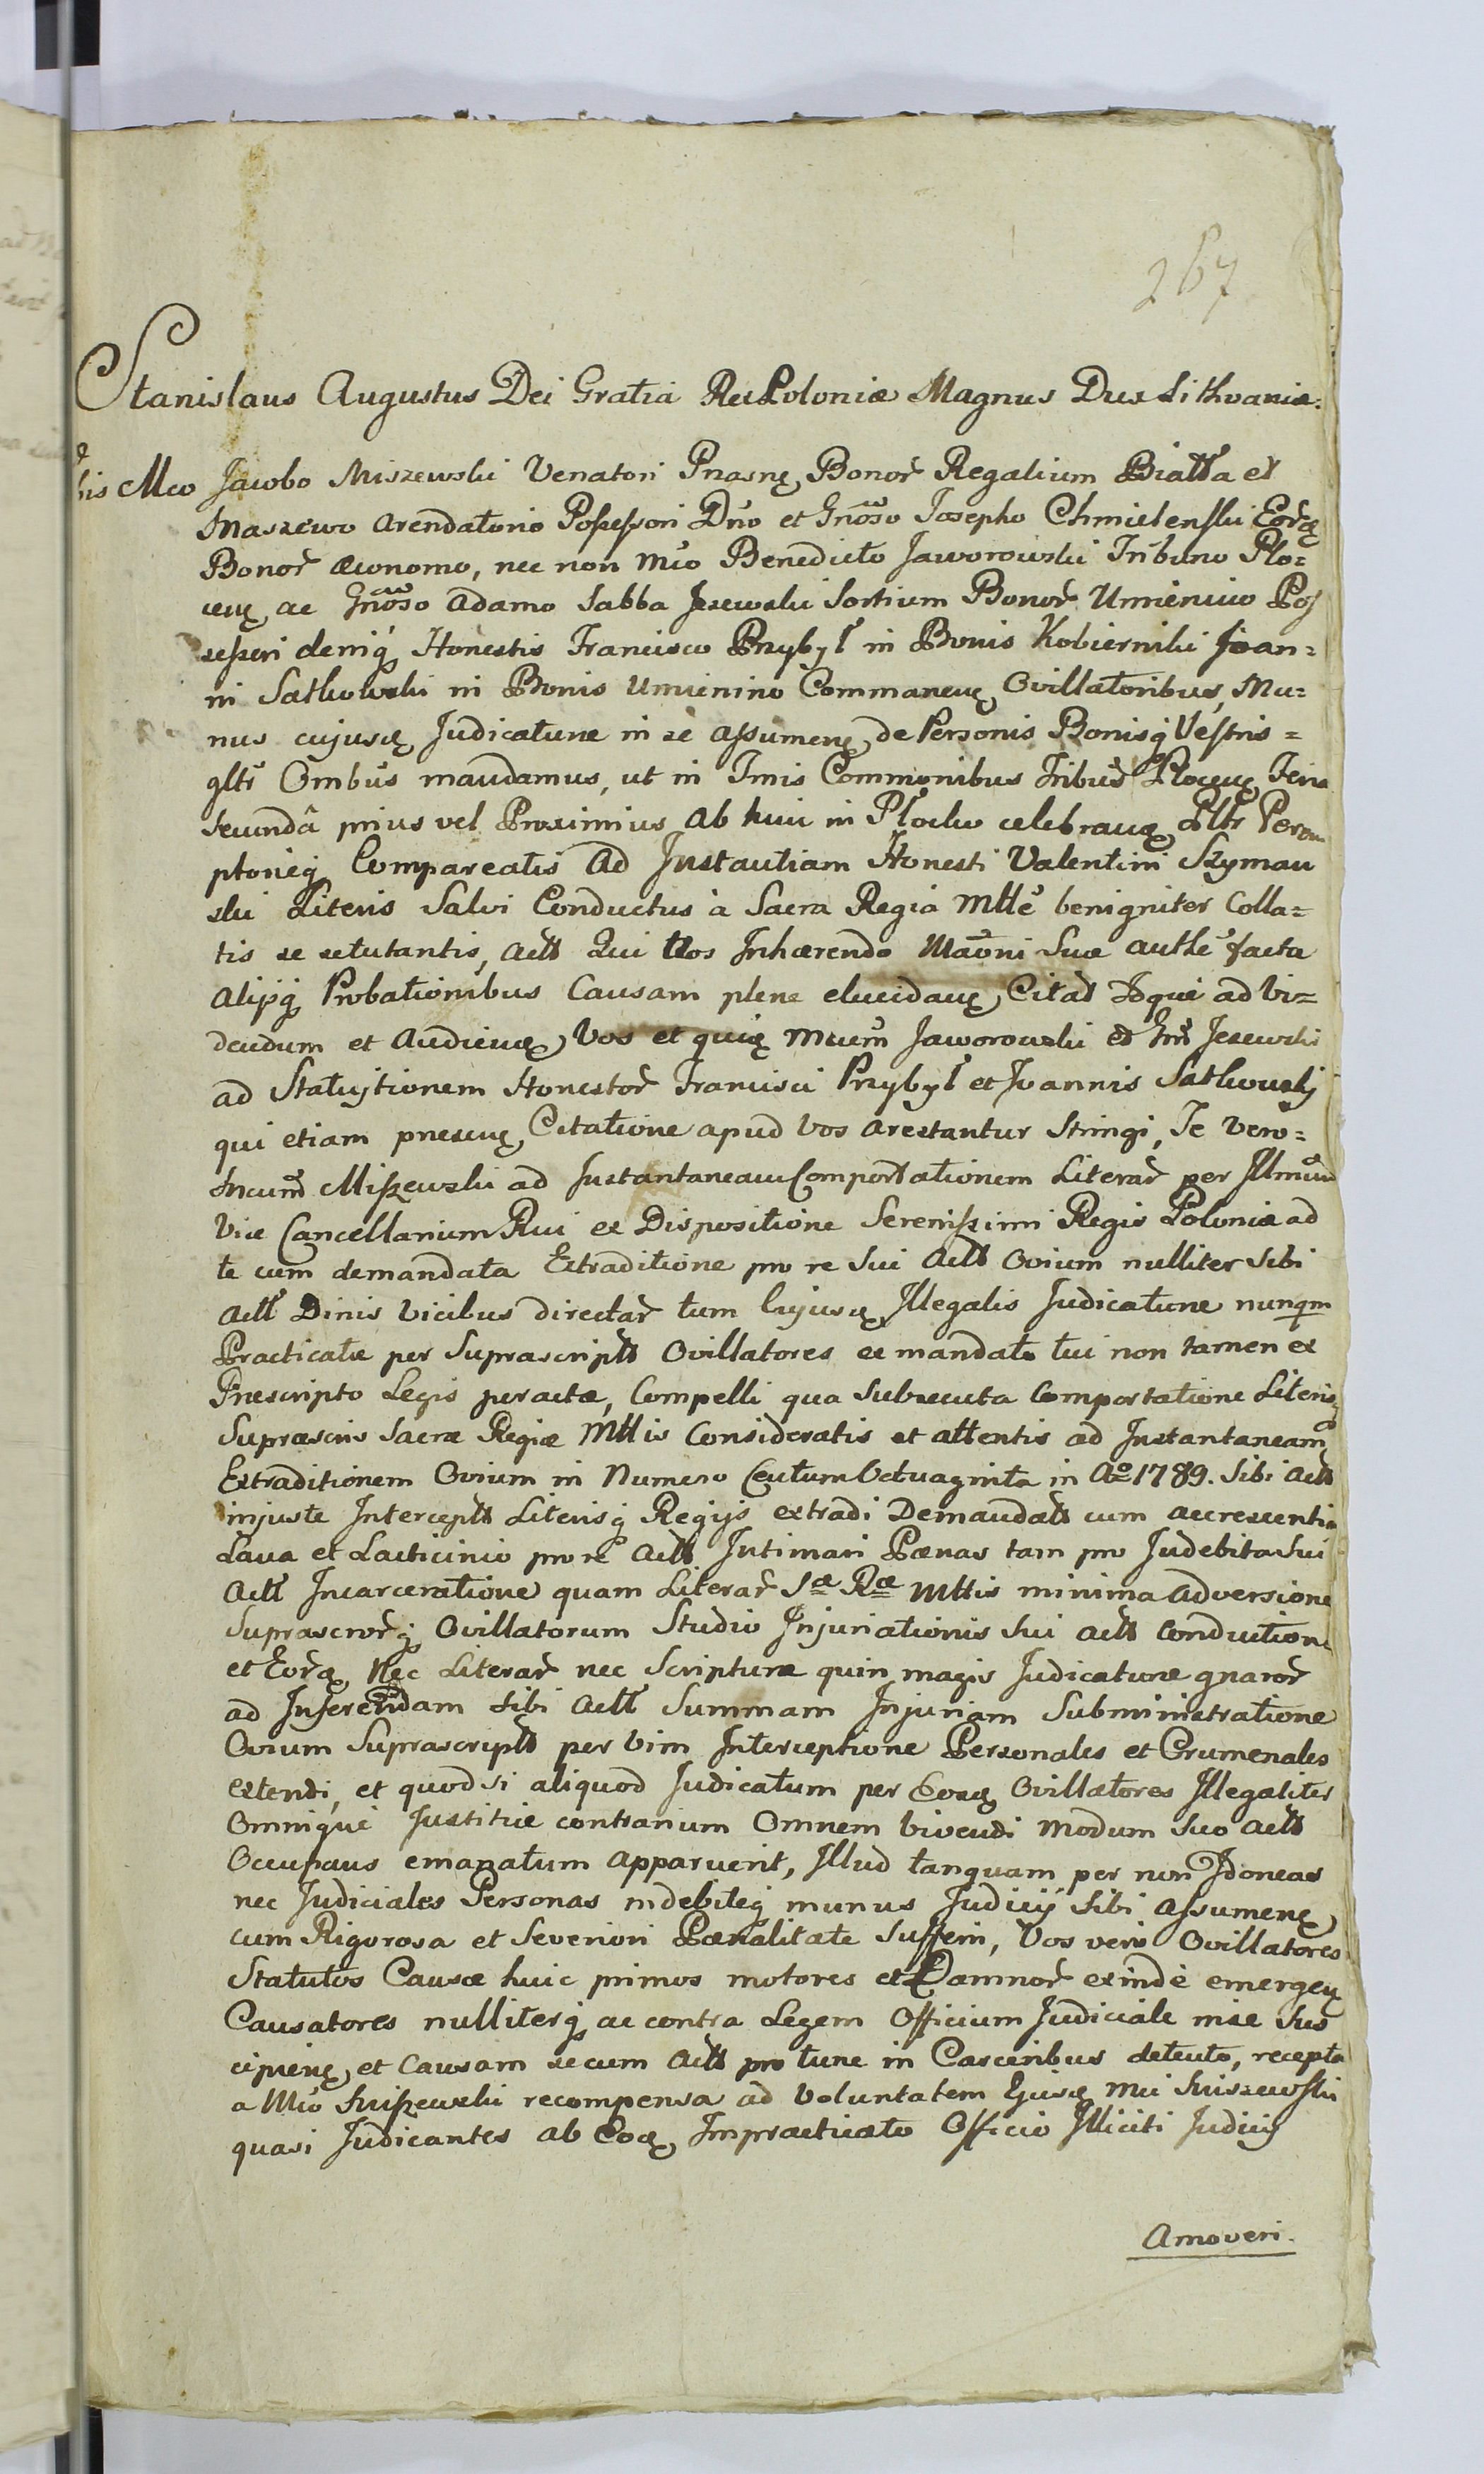 267
Stanislaus Augustus Dei Gratia Rex Poloniæ Magnus Dux Lithvaniæ.
Mco Jacobo Miszewski Venatori Prasnę Bonor̃ Regalium Biała et
Maszewo Arendatorio Possessori Dño et Gnõso Josepho Chmielenski Eorõꝗ
Bonor̃ Æconomo, nec non Mco Benedicto Jaworowski Tribuno Plo=
cenę ac Gnõso Adamo Sabba Jezewski Sortium Bonor̃ Umienino Pos
sessori deniq Honestis Francisco Przybył in Bonis Kobierniki Joan=
ni Satkowski in Bonis Umienino Commanenę Ovillatoribus, Mu=
nus cujuscę Judicaturæ in se assumenę de Personis Bonisq Vestris=
gltr̃ Ombus mandamus, ut in Tmis Communibus Tribus Plocenę Feria
Secundâ prius vel Proximius ab huic in Płocko celebranę Pltr Perem
ptorieq Compareatis ad Instantiam Honesti Valentini Szyman
ski Literis Salvi Conductus à Sacra Regia Mtte benigniter Colla=
tis se tutantis, Actt Qui Vos Inhærendo Mãoni Suæ authe facta
Alijsq Probationibus Causam plene elucidanę Citat Idque ad Vi=
dendum et Audienę Vos et quię Mcum Jaworowski et Gnm̃ Jezewski
ad Statujtionem Honestor̃ Francisci Przybył et Joannis Satkowskj
qui etiam præsenę Citatione apud Vos arestantur Stringi, Te Vero=
Mcum Miszewski ad Instantaneam Comportationem Literar̃ per Illmum
Vice Cancellarium Rni ex Dispositione Serenissimi Regis Poloniæ ad
te cum demandata Extraditione pro re Sui Actt Ovium nulliter Sibi
Actt Dinis Vicibus directar̃ tum Cujuscę Illegalis Judicaturæ nunqm
Practicatæ per Suprascriptt Ovillatores ex mandato tui non tamen ex
Præscripto Legis peractæ, Compelli qua Subsecuta Comportatione Literisq
Suprascris Sacræ Regiæ Mttis Consideratis et attentis ad Instantaneam
Extraditionem Ovium in Numero Centum Octuaginta in Ao 1789. Sibi Actt
injuste Interceptt Literisq Regijs extradi Demandatt cum accrescentia
Lana et Lacticinio pro re Actt Intimari Pænas tam pro Indebita Sui
Actt Incarceratione quam Literar̃ Sæ Ræ Mttis minima adversione
Suprascror̃q Ovillatorum Studio Injuriationis Sui Actt Conductione
et Eorõꝗ Nec Literar̃ nec Scripturæ quin magis Judicaturæ gnaror̃
ad Inferendam Sibi Actt Summam Injuriam Subministratione
Ovium Suprascriptt per Vim Interceptione Personales et Crumenales
extendi, et quod si aliquod Judicatum per Eosdę Ovillatores Illegaliter
Omnique Justitiæ contrarium Omnem Vivendi Modum Suo Actt
Occupans emanatum Apparuerit, Illud tanquam per non Idoneas
nec Judiciales Personas indebiteq munus Judicij Sibi Assumenę
cum Rigorosa et Severiori Pænalitate Sufferri, Vos vero Ovillatores
Statutos Causæ huic primos motores et Damnor̃ exinde emergenę
Causatores nulliterq ac contra Legem Officium Judiciale in se Sus
cipienę et Causam secum Actt pro tunc in Carceribus detento, recepta
a Mco Miszewski recompensa ad Voluntatem Ejusdę Mci Miszewski
quasi Judicantes ab Eodę Impracticato Officio Illiciti Judicij
Amoveri.